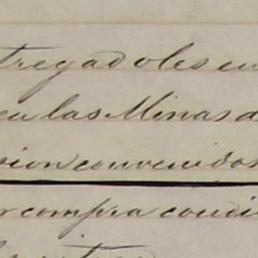 tregadoles en
en las Minas d
sion convenidos
r compra condi